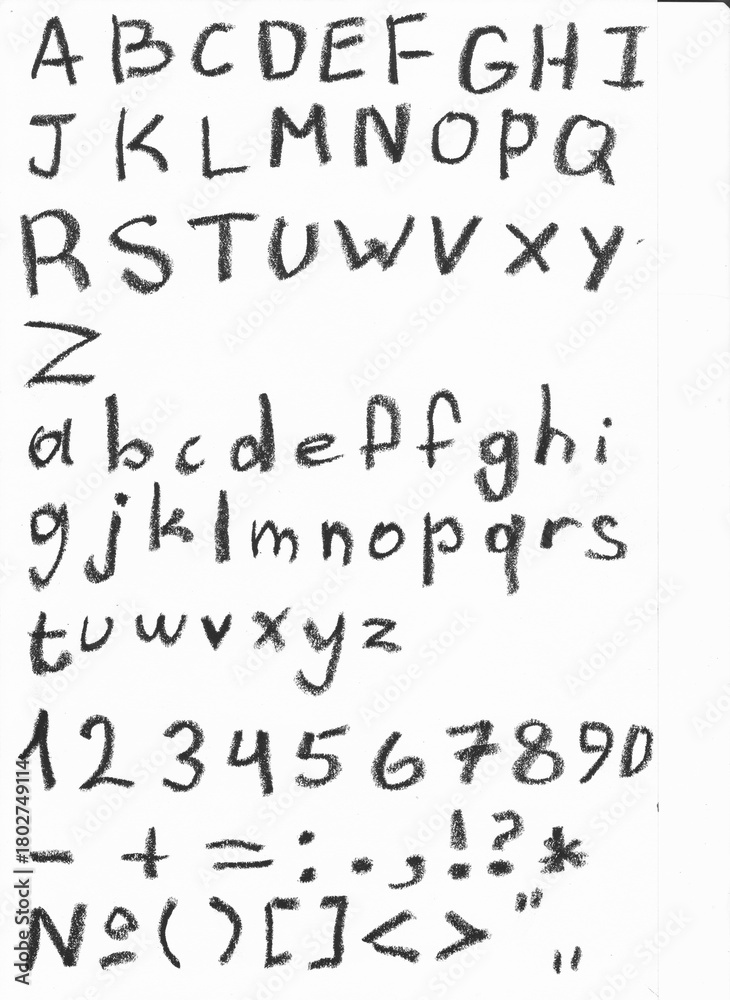 A B C D E F G H I
J K L M N O P Q
R S T U W V X Y
Z
a b c d e f f g h i
g j k l m n o p q r s
t u w v x y z
1 2 3 4 5 6 7 8 9 0
- + = : . , ! ? *
№ ( ) [ ] < > " "
Adobe Stock | #1802749114